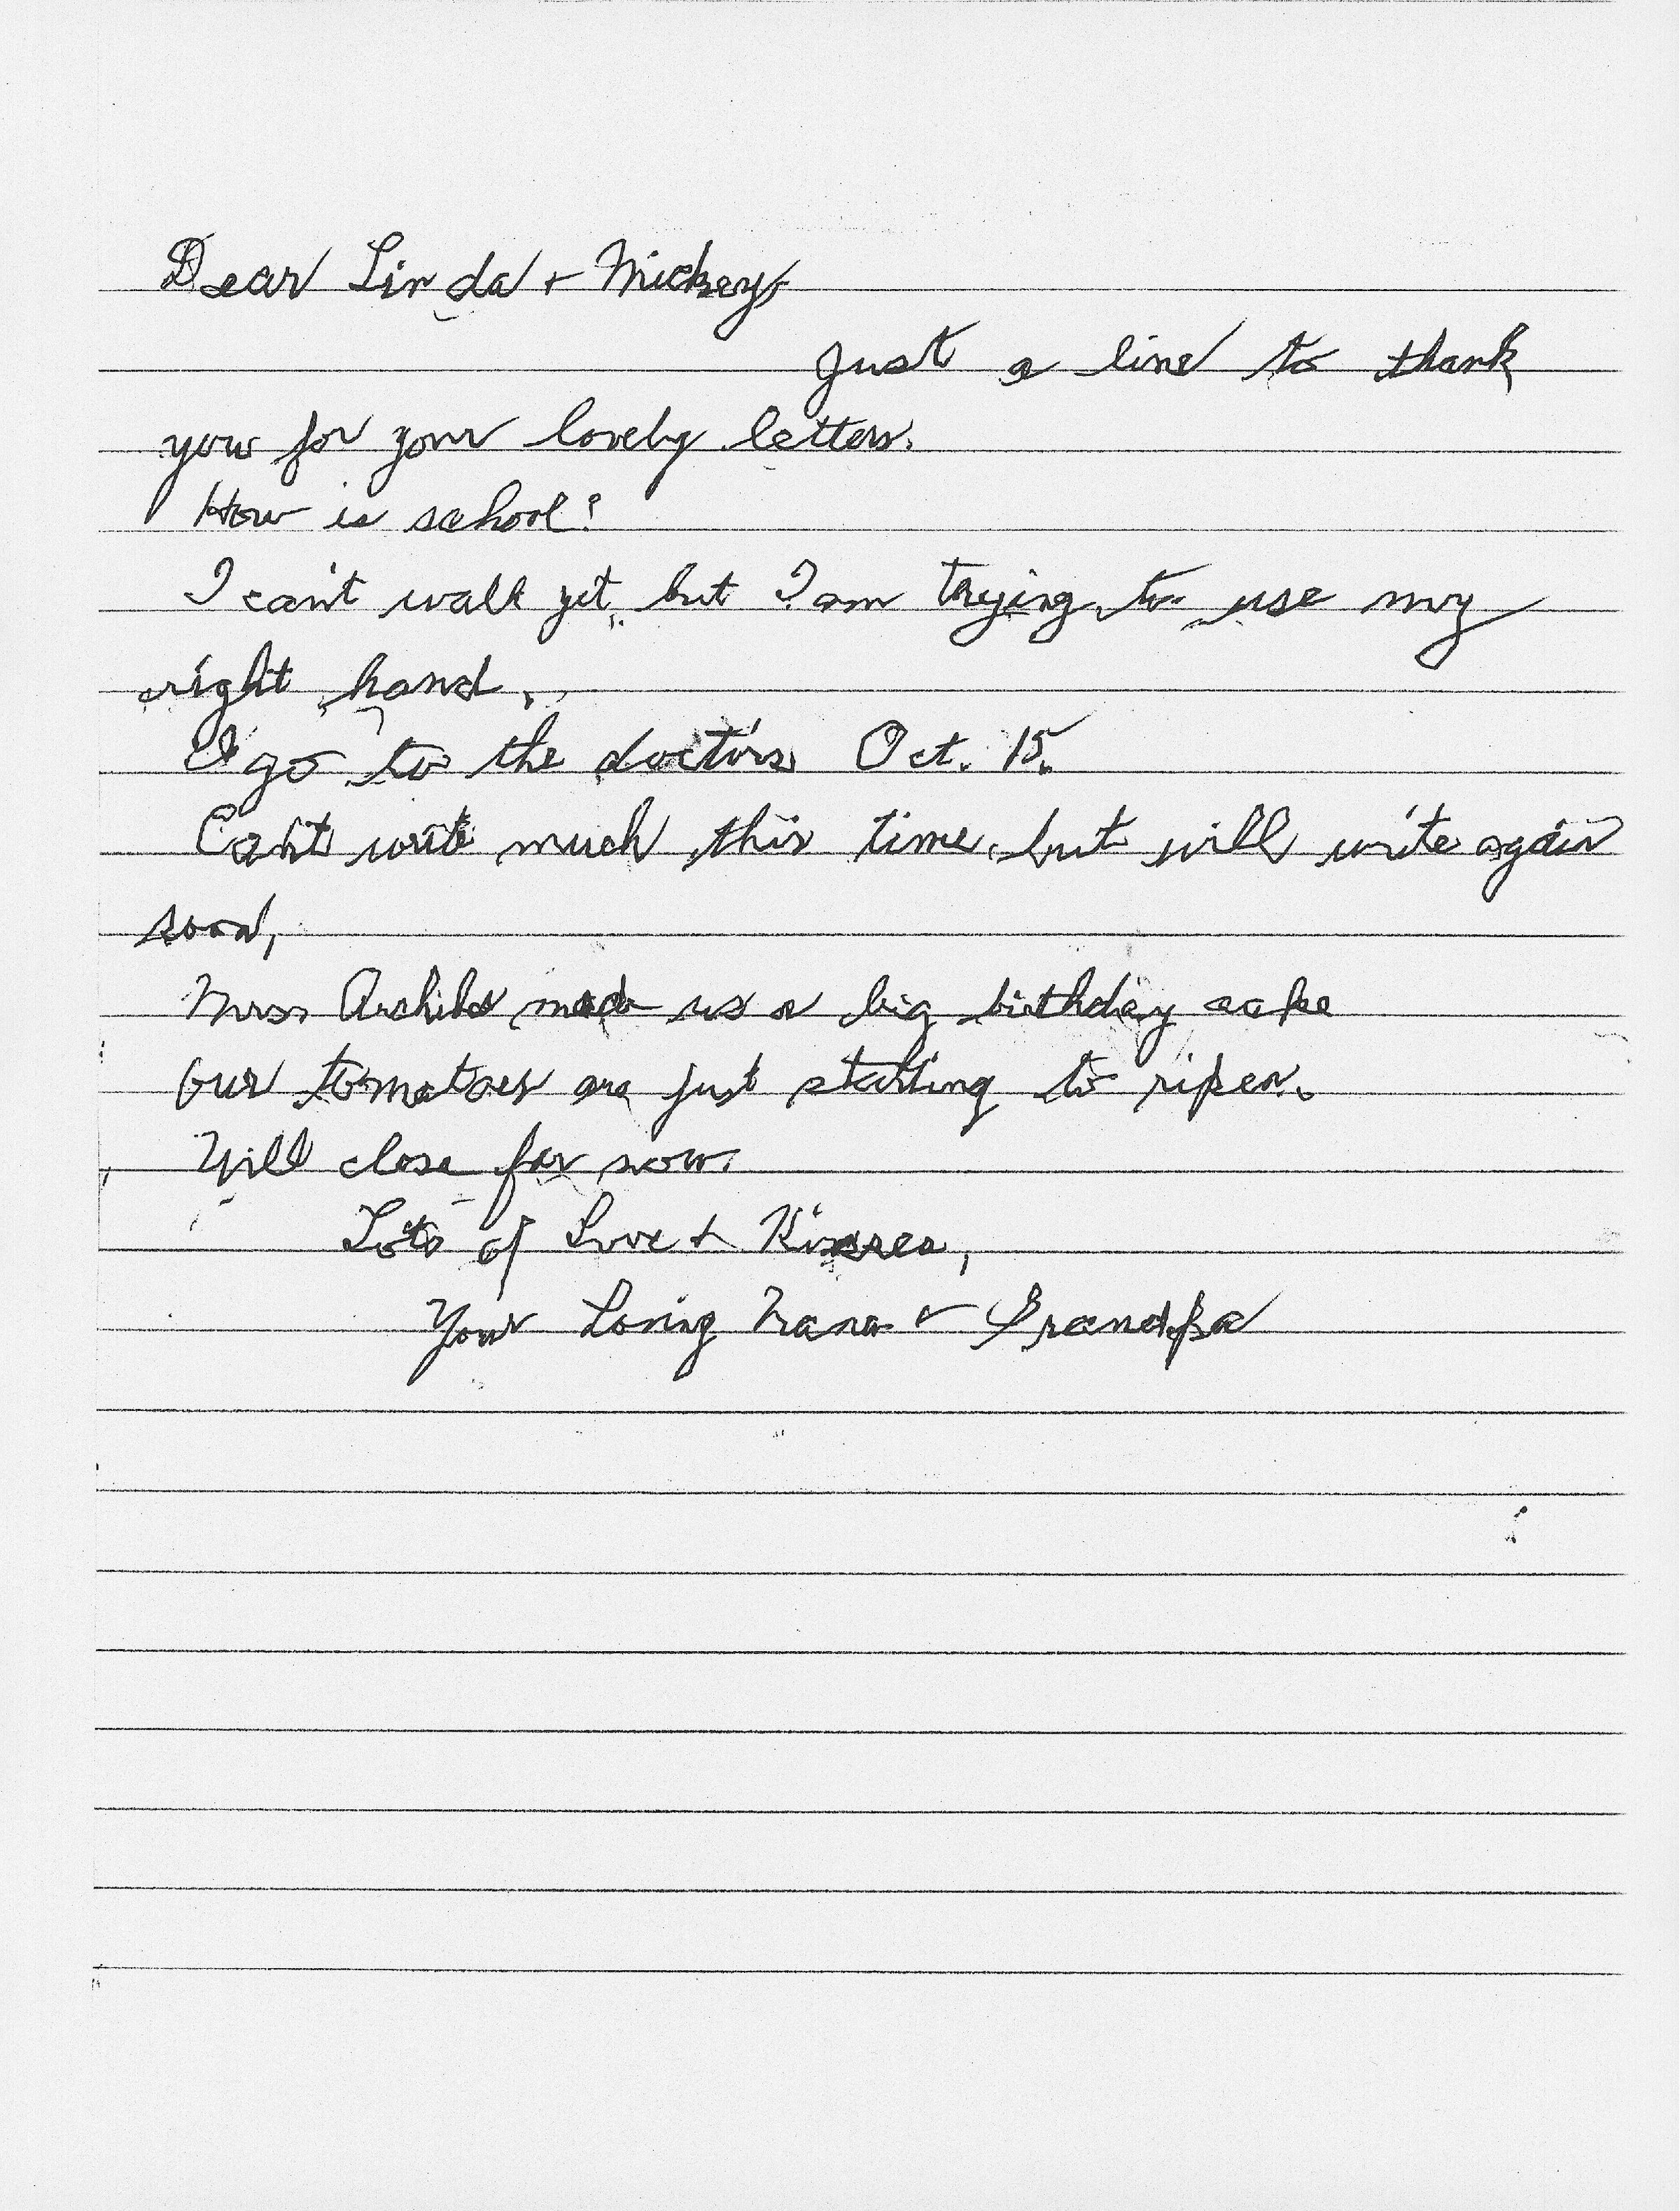 Dear Linda + Mickey,
Just a line to thank
you for your lovely letters.
How is school?
I can't walk yet, but I am trying to use my
right hand.
I go to the doctors Oct. 15.
Can't write much this time, but will write again
soon,
Mrs. made us a big birthday cake
Our tomatoes are just starting to ripen.
Will close for now.
Lots of Love + Kisses,
Your Loving Nana + Grandpa